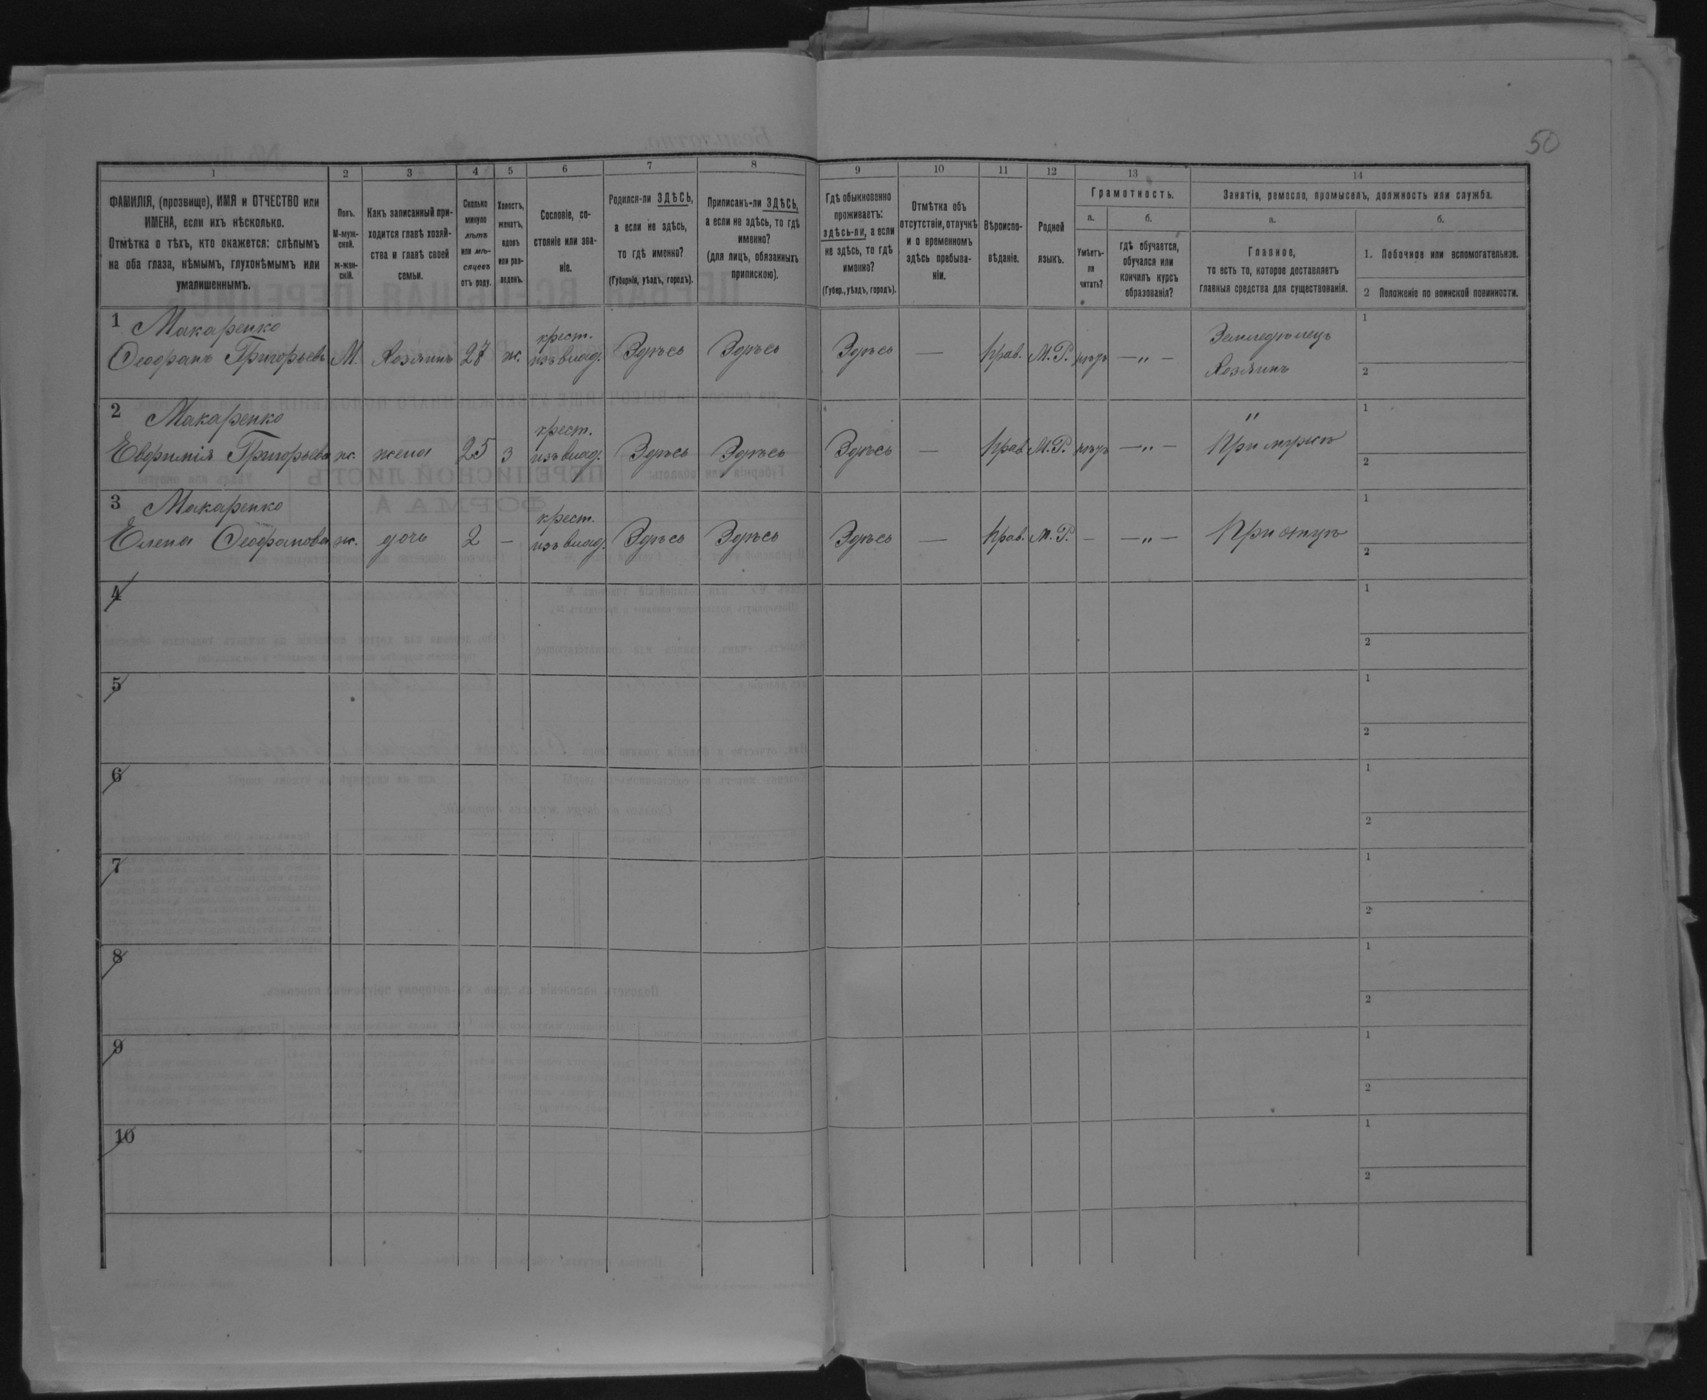 50
1 2 3 4 5 6 7 8 9 10 11 12 13 14
ФАМИЛІЯ, (прозвище), ИМЯ и ОТЧЕСТВО или
ИМЕНА, если ихъ нѣсколько.
Отмѣтка о тѣхъ, кто окажется: слѣпымъ
на оба глаза, нѣмымъ, глухонѣмымъ или
умалишеннымъ.
Полъ.
М-муж-
ской.
ж-жен-
скій.
Какъ записанный при-
ходится главѣ хозяй-
ства и главѣ своей
семьи.
Сколько
минуло
лѣтъ
или мѣ-
сяцевъ
отъ роду.
Холостъ,
женатъ,
вдовъ
или раз-
веденъ.
Сословіе, со-
стояніе или зва-
ніе.
Родился-ли ЗДѢСЬ,
а если не здѣсь,
то гдѣ именно?
(Губернія, уѣздъ, городъ).
Приписанъ-ли ЗДѢСЬ,
а если не здѣсь, то гдѣ
именно?
(для лицъ, обязанныхъ
припискою).
Гдѣ обыкновенно
проживаетъ:
здѣсь-ли, а если
не здѣсь, то гдѣ
именно?
(Губер., уѣздъ, городъ).
Отмѣтка объ
отсутствіи, отлучкѣ
и о временномъ
здѣсь пребыва-
ніи.
Вѣроиспо-
вѣданіе.
Родной
языкъ.
Грамотность.
а.
Умѣетъ-
ли
читать?
б.
гдѣ обучается,
обучался или
кончилъ курсъ
образованія?
Занятія, ремесло, промыселъ, должность или служба.
а.
Главное,
то есть то, которое доставляетъ
главныя средства для существованія.
б.
1. Побочное или вспомогательное.
2 Положеніе по воинской повинности.
1 Макаренко
Ѳеофанъ Григорьевъ М. Хозяинъ 27 ж. крест. изъ влад. Здѣсь Здѣсь Здѣсь — Прав. М.Р. нѣтъ —„— Земледѣлецъ Хозяинъ 1 2
2 Макаренко
Евфимія Григорьева ж. жена 25 З крест. изъ влад. Здѣсь Здѣсь Здѣсь — Прав. М.Р. нѣтъ —„— „ При мужѣ 1 2
3 Макаренко
Елена Ѳеофанова ж. дочь 2 — крест. изъ влад. Здѣсь Здѣсь Здѣсь — Прав. М.Р. — —„— При отцѣ 1 2
4 1 2
5 1 2
6 1 2
7 1 2
8 1 2
9 1 2
10 1 2